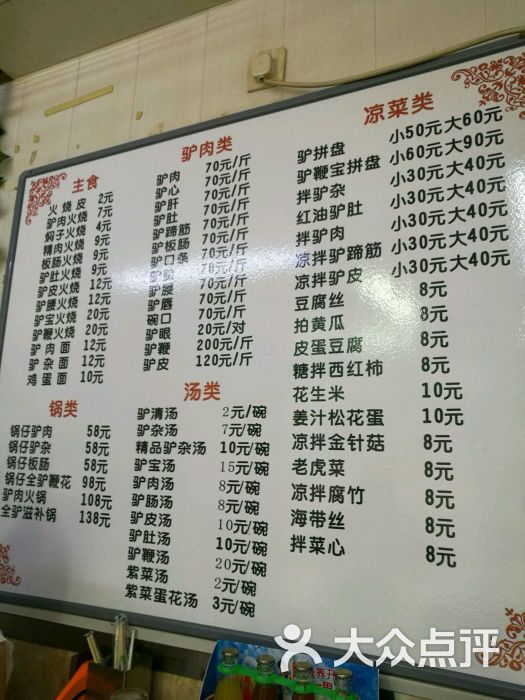 主食
火烧皮 2元
驴肉火烧 7元
焖子火烧 4元
精肉火烧 9元
板肠火烧 9元
驴肚火烧 9元
驴皮火烧 12元
驴腰火烧 12元
驴宝火烧 20元
驴鞭火烧 20元
驴肉面 12元
驴杂面 12元
鸡蛋面 10元
锅类
锅仔驴肉 58元
锅仔驴杂 58元
锅仔板肠 58元
锅仔全驴鞭花 98元
驴肉火锅 108元
全驴滋补锅 138元
驴肉类
驴肉 70元/斤
驴心 70元/斤
驴肝 70元/斤
驴肚 70元/斤
驴蹄筋 70元/斤
驴板肠 70元/斤
驴口条 70元/斤
驴脸 70元/斤
驴腰 70元/斤
驴唇 70元/斤
碗口 70元/斤
驴眼 20元/对
驴鞭 200元/斤
驴皮 120元/斤
汤类
驴清汤 2元/碗
驴杂汤 7元/碗
精品驴杂汤 10元/碗
驴宝汤 15元/碗
驴肉汤 8元/碗
驴肠汤 8元/碗
驴皮汤 10元/碗
驴肚汤 10元/碗
驴鞭汤 20元/碗
紫菜汤 2元/碗
紫菜蛋花汤 3元/碗
凉菜类
驴拼盘 小50元大60元
驴鞭宝拼盘 小60元大90元
拌驴杂 小30元大40元
红油驴肚 小30元大40元
拌驴肉 小30元大40元
凉拌驴蹄筋 小30元大40元
凉拌驴皮 小30元大40元
豆腐丝 8元
拍黄瓜 8元
皮蛋豆腐 8元
糖拌西红柿 8元
花生米 10元
姜汁松花蛋 10元
凉拌金针菇 8元
老虎菜 8元
凉拌腐竹 8元
海带丝 8元
拌菜心 8元
大众点评